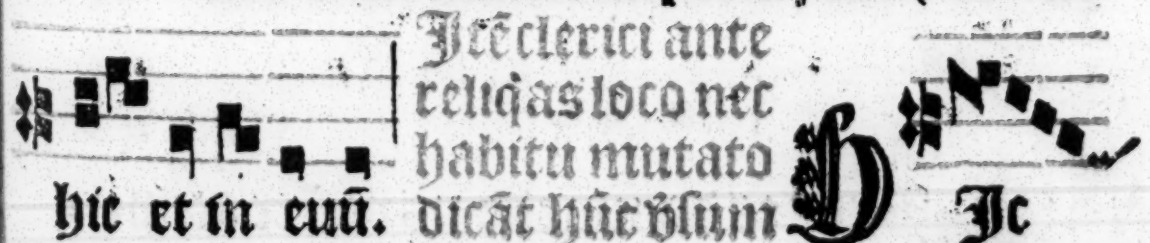 hic et in euū.
Itē clerici ante
reliq̄as loco nec
habitu mutato
dicāt hūc v̄sum
HIc